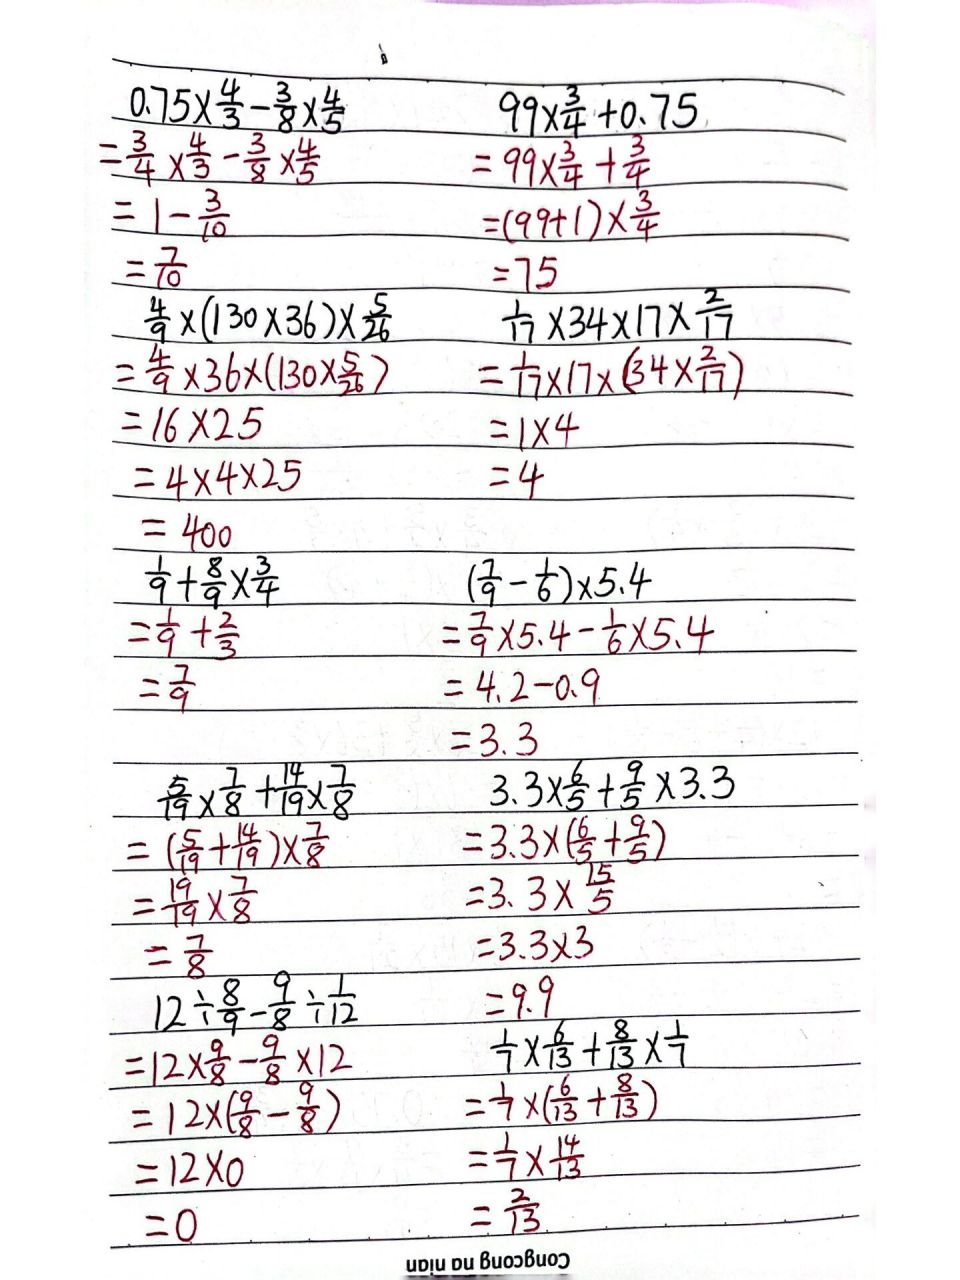 0.75×4/3-3/8×4/5
=3/4×4/3-3/8×4/5
=1-3/10
=7/10
4/9×(130×36)×5/26
=4/9×36×(130×5/26)
=16×25
=4×4×25
=400
1/9+8/9×3/4
=1/9+2/3
=7/9
5/19×7/8+14/19×7/8
=(5/19+14/19)×7/8
=19/19×7/8
=7/8
12÷8/9-9/8÷1/12
=12×9/8-9/8×12
=12×(9/8-9/8)
=12×0
=0
99×3/4+0.75
=99×3/4+3/4
=(99+1)×3/4
=75
1/17×34×17×2/17
=1/17×17×(34×2/17)
=1×4
=4
(7/9-1/6)×5.4
=7/9×5.4-1/6×5.4
=4.2-0.9
=3.3
3.3×6/5+9/5×3.3
=3.3×(6/5+9/5)
=3.3×15/5
=3.3×3
=9.9
1/7×6/13+8/13×1/7
=1/7×(6/13+8/13)
=1/7×14/13
=2/13
Congcong na nian